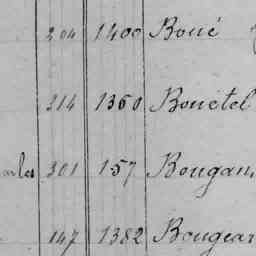 204 1400 Boué
214 1360 Bouctel
301 157 Bougan
147 1382 Bougear